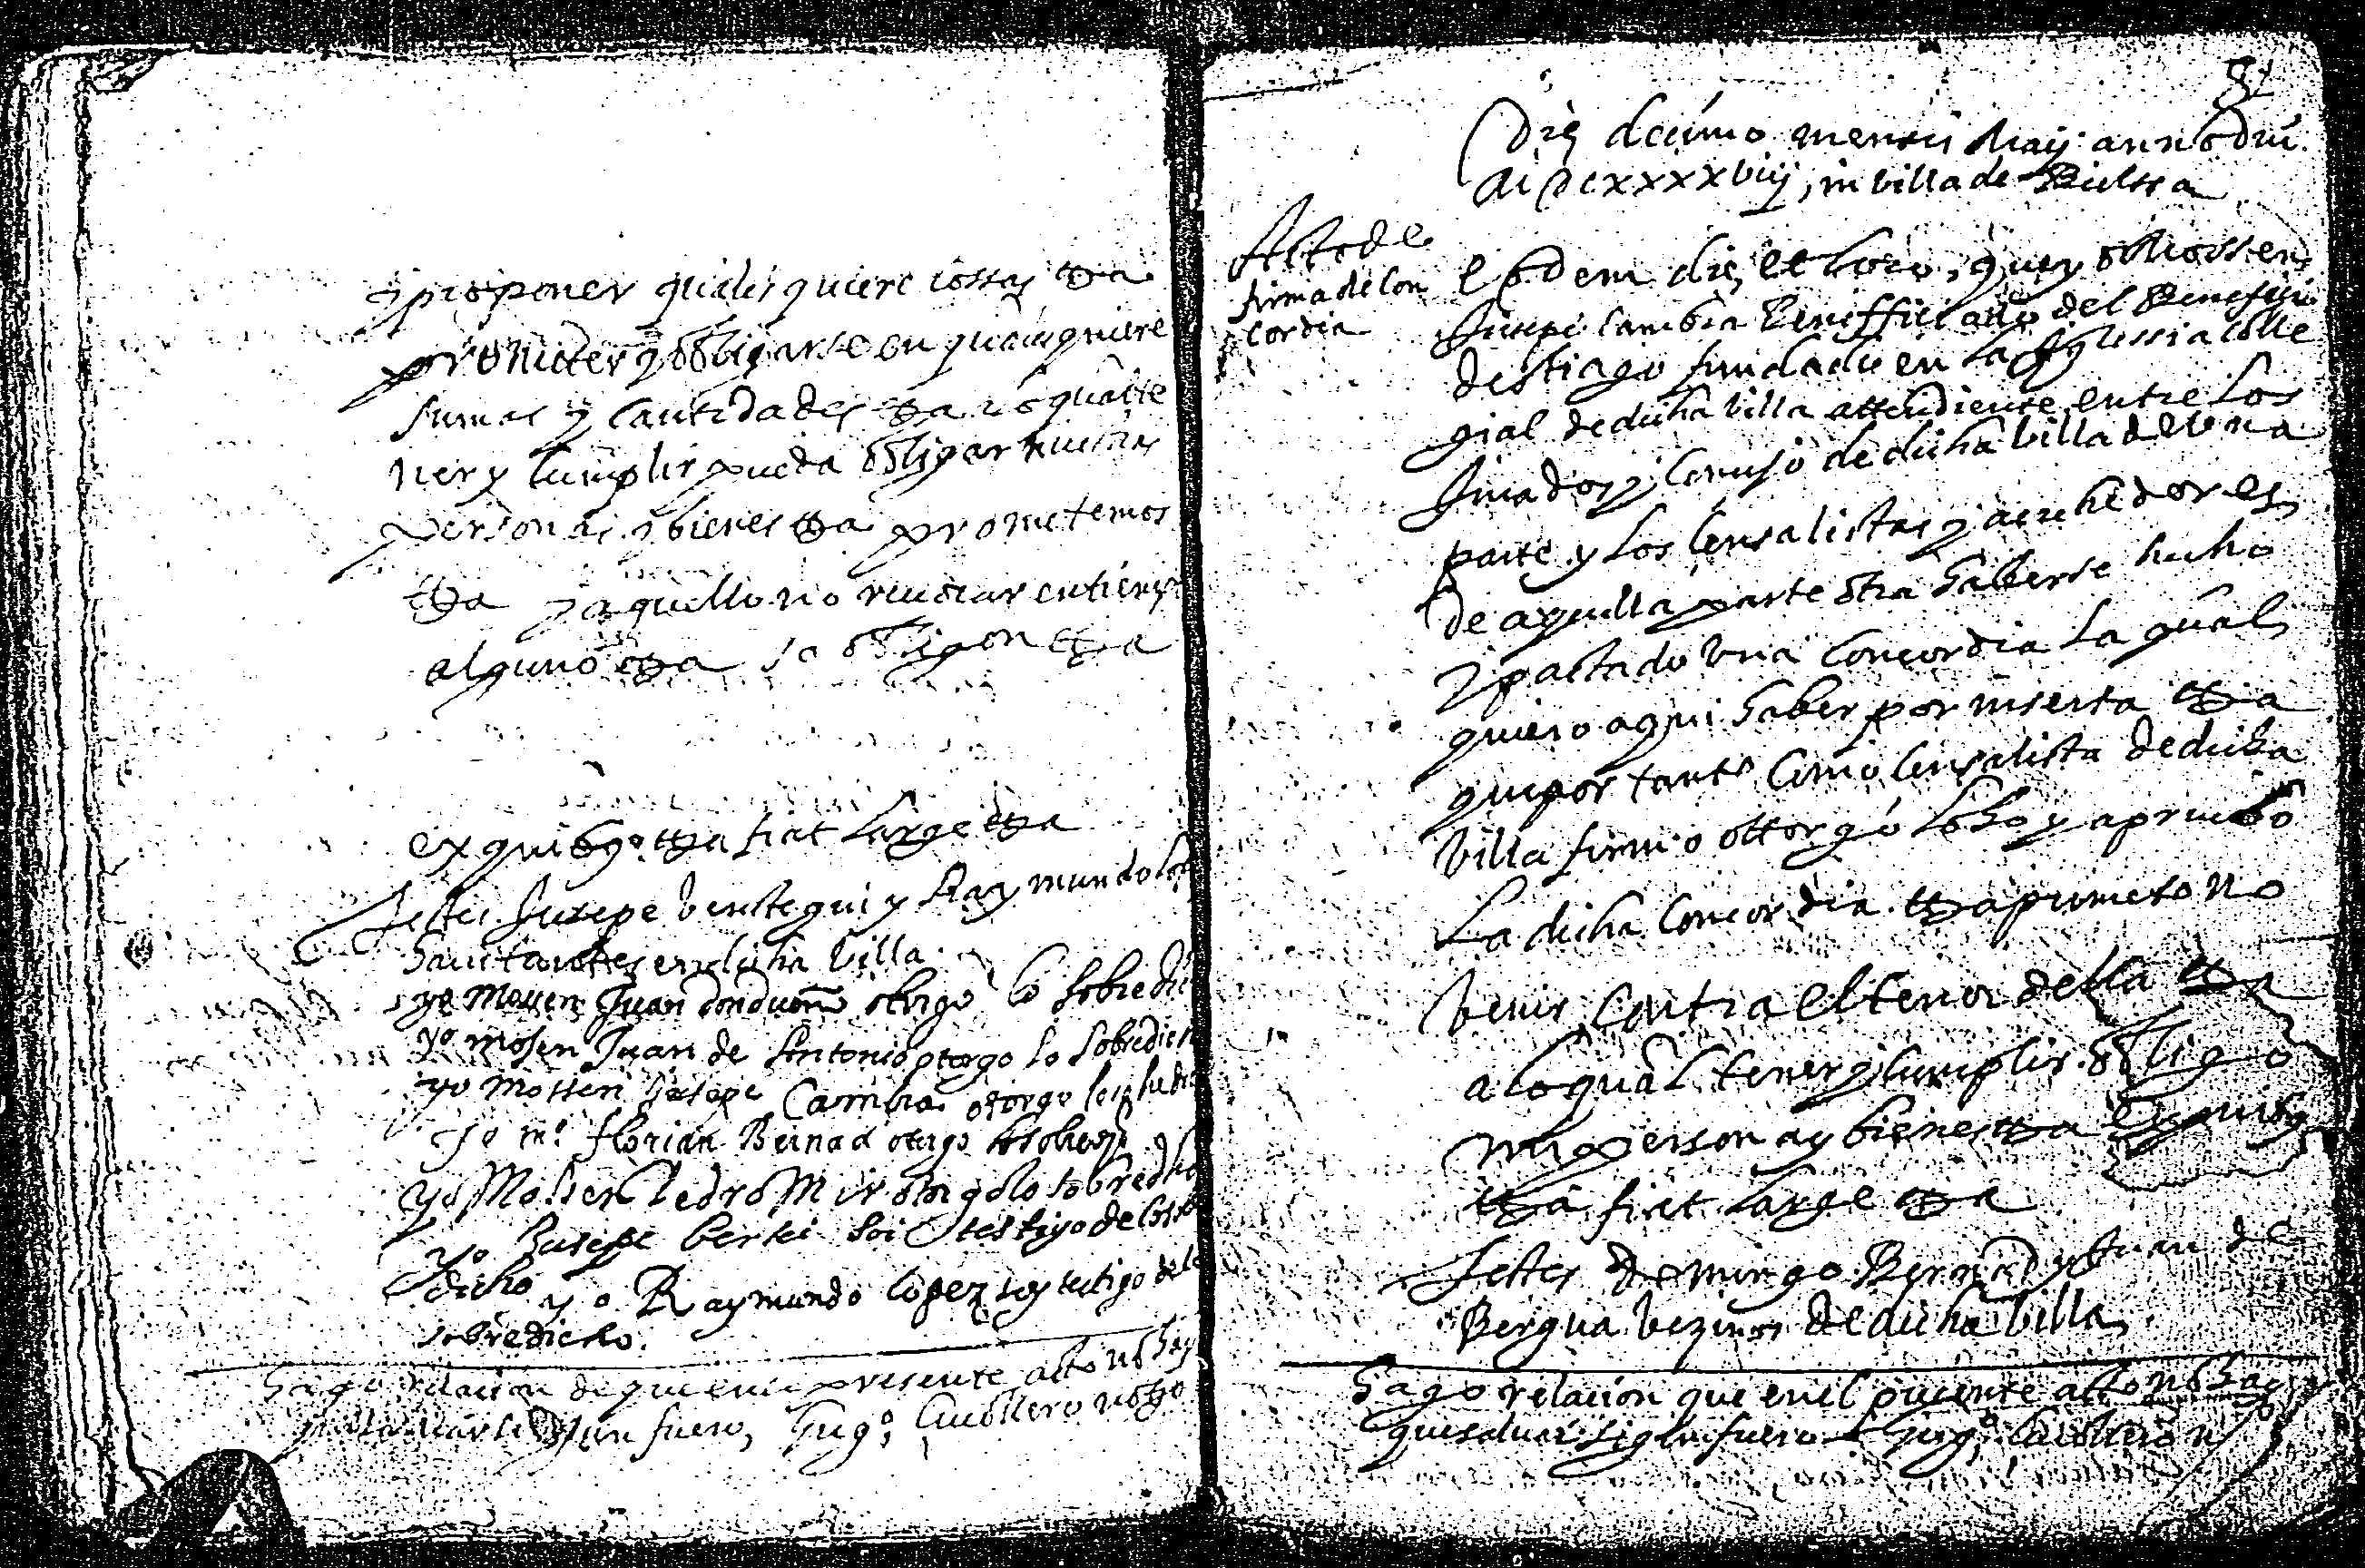 y proponer qualesquiere cossas etta
prometer y obligarse en qualesquiere
sumas y cantidades etta a lo qual te
ner y cumplir pueda obligar nuestras
personas y bienes etta prometemos
etta y aquello no revocar en tiempo
alguno etta so obligon etta
ex quibus etta fiat large etta
Testes Jusepe berastegui y Raymundo Lop
havitantes en dicha villa
yo Mossen Juan donduone otorgo lo sobredi
yo mosen Juan de Sintonio otorgo lo sobredich
yo mossen Jusepe Cambra otorgo lo
yo mo. florian Bernad otorgo lo sobredo
yo Mossen Pedro Mir otorgo lo sobredho
yo Jusepe soi testigo de lo sobre
dicho yo Raymundo lopez soy testigo de lo
sobredicho.
Hago relacion de que en el presente acto no hay
fuero,
82
Die decimo mensis Maij anno dni.
MDCXXXXviiij, in villa de Bielssa
Acto de
firma de con
cordia
Eodem die, et loco, que yo Mossen
Jusepe Cambra Benefficiado del Beneficio
de stiago fundado en la Yglessia colle
gial de dicha villa attendiente entre los
Jurados y Consejo de dicha villa de vna
parte y los Censalistas y acrehedores
de aquella parte otra haberse hecho
y pactado vna Concordia la qual
quiero aqui haber por inserta etta
que por tanto Como Censalista de dicha
villa firmo ottorgo loho y apruebo
La dicha Concordia etta prometo no
venir contra el tenor della etta
a lo qual tener y cumplir obligo
mi persona y bienes etta Ex quibus
etta fiat large etta
Testes Domingo Bernad y Juan de
Bergua vezinos de dicha villa
Hago relacion que en el presente acto no hay
que salvar segun fuero